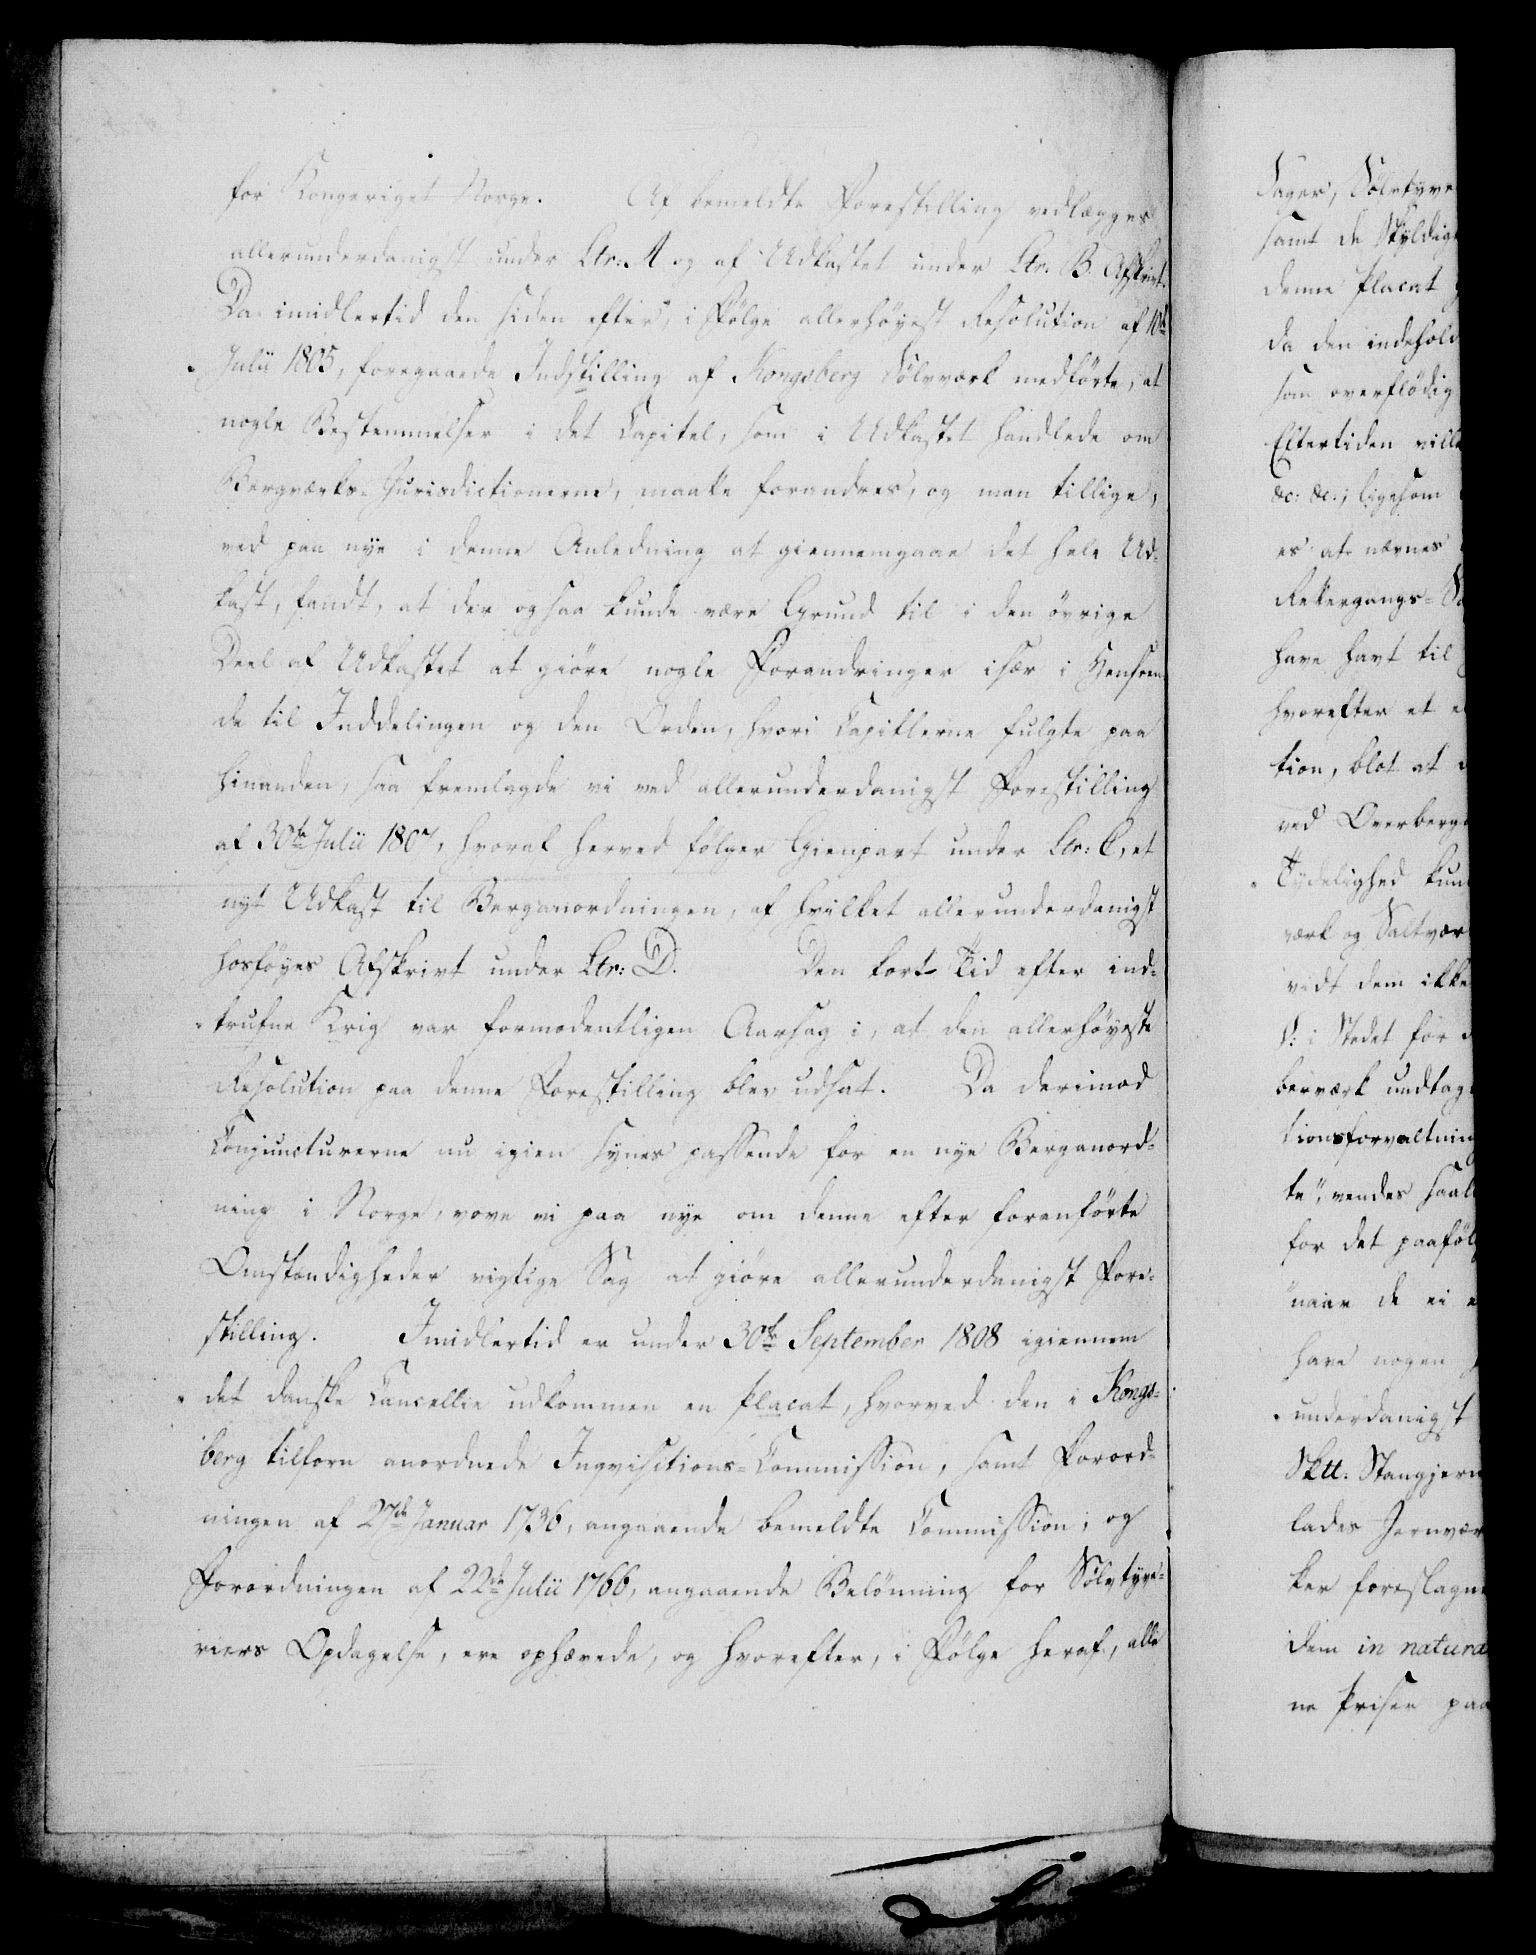 for Kongeriget Norge. Af bemeldte Forestilling vedlægges
allerunderdanigst under Ltr: A og af Udkastet under Ltr: B. Afskrivt.
Da imidlertid den siden efter, i Følge allerhöyest Resolution af 10de
Julii 1805, foregaaede Indstilling af Kongsberg Sölvværk medförte, at
nogle Bestemmelser i det Capitel, som i Udkastet handlede om
Bergværks-Jurisdictionerne, maatte forandres, og man tillige,
ved paa nye i denne Anledning at giennemgaae det hele Ud-
kast, fandt, at der ogsaa kunde være Grund til i den övrige
Deel af Udkastet at giöre nogle Forandringer især i Henseen-
de til Inddelingen og den Orden, hvori Capitlerne fulgte paa
hinanden, saa fremlagde vi ved allerunderdanigst Forestilling
af 30te Julii 1807, hvoraf herved fölger Gienpart under Ltr: C, et
nyt Udkast til Berganordningen, af hvilket allerunderdanigst
hosföyes Afskrivt under Ltr: D. Den kort Tid efter ind-
trufne Krig var formodentligen Aarsag i, at den allerhöyeste
Resolution paa denne Forestilling blev udsat. Da derimod
Conjuncturerne nu igien synes passende for en nye Berganord-
ning i Norge, vove vi paa nye om denne efter foranförte
Omstændigheder vigtige Sag at giöre allerunderdanigst Fore-
stilling. Imidlertid er under 30te September 1808 igiennem
det danske Cancellie udkommen en Placat, hvorved den i Kongs-
berg tilforn anordnede Inqvisitions-Commission, samt Forord-
ningen af 27de Januar 1736, angaaende bemeldte Commission, og
Forordningen af 22de Julii 1766, angaaende Belönning for Sölvtyve-
riers Opdagelse, ere ophævede, og hvorefter, i Fölge heraf, alle
Sager, Sölvtyve
samt de Skyldige
denne Placat
da den indehold
som overflödig
Eftertiden ville
&c: &c:, ligesom
es at nævnes
Rettergangs-
have havt til
hvorefter et
tion, blot at
ved Overberg
Tydelighed kun
værk og Saltvær
vidt dem ikke
V: i Stedet for
berværk undtag
tionsforvaltning
te", vendes saal
for det paaföl
"naar de ei
have nogen
underdanigst
Sktt: Stangjern
lades Jernvær
ker foreslagne
dem in natura
ne Priser paa